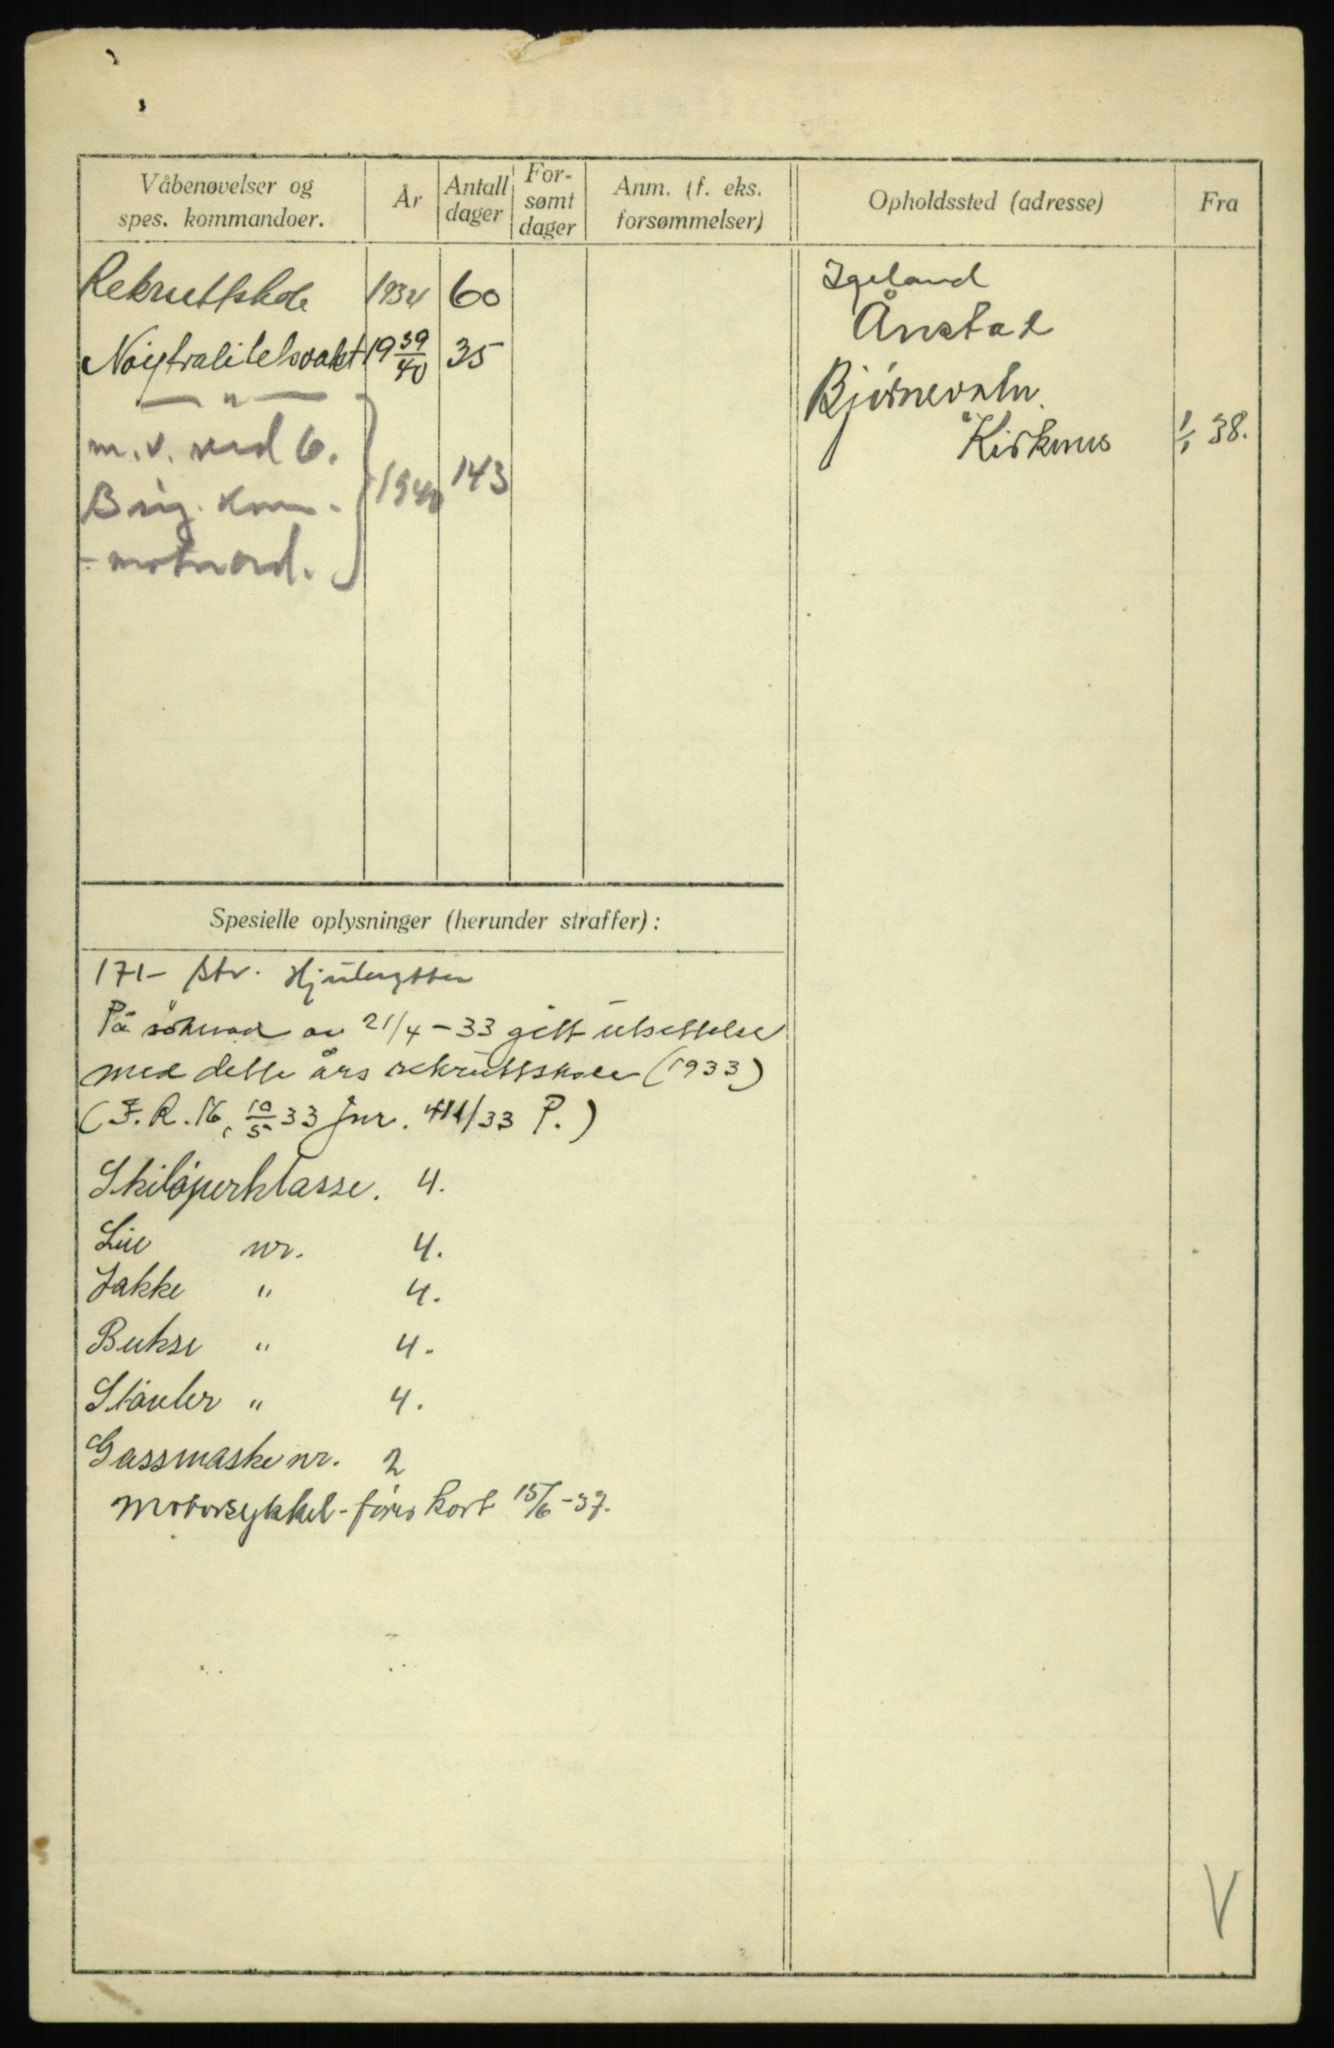 Våbenøvelser og
spes. kommandoer.
År
Antall
dager
For-
sømt
dager
Anm. (f. eks.
forsømmelser)
Opholdssted (adresse)
Fra
Rekruttskole 1934 60
Nøytralitetsvakt 19 39/40 35
— " —
m. v. ved 6.
Brig. kom-
- motorord.
1940 143
Igeland
Ånstad
Bjørnevatn.
Kirkenes 1/1 38.
Spesielle oplysninger (herunder straffer):
171- str. Hjulrytter
På søknad av 21/4 - 33 gitt utsettelse
med dette års rekruttskole (1933)
(I. R. 16, 10/5 33 Jnr. 411/33 P.)
Skiløperklasse. 4.
Lue nr. 4.
Jakke " 4.
Bukse " 4.
Støvler " 4.
Gassmaske nr. 2
Motorsykkel-førerkort 15/6 - 37.
V